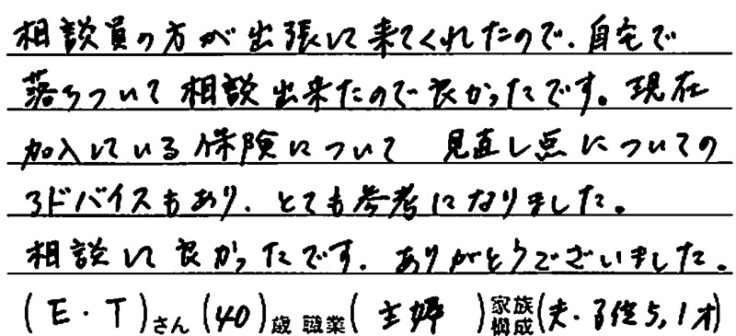 相談員の方が出張して来てくれたので、自宅で
落ちついて相談出来たので良かったです。現在
加入している保険について 見直し点についての
アドバイスもあり、とても参考になりました。
相談して良かったです。ありがとうございました。
(E・T)さん (40)歳 職業(主婦)家族構成(夫・子供5,1才)